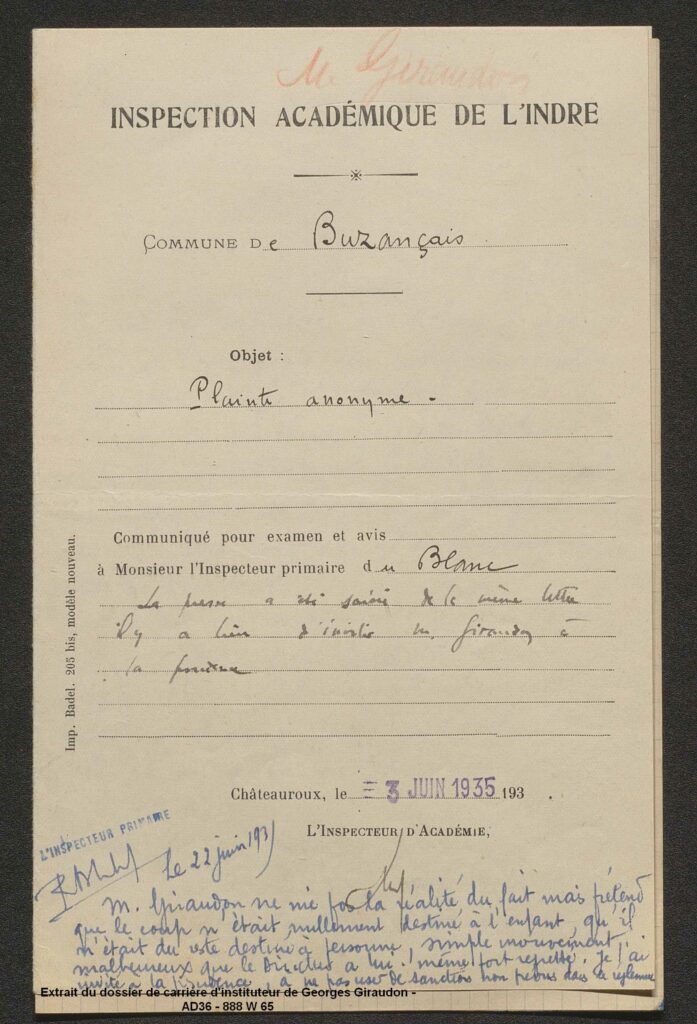 M. Giraudon
INSPECTION ACADÉMIQUE DE L'INDRE
COMMUNE De Buzançais
Objet :
Plainte anonyme -
Communiqué pour examen et avis
à Monsieur l'Inspecteur primaire du Blanc
La presse a été saisie de la même lettre
il y a lieu d'inviter M. Giraudon à
la prudence
Imp. Badel. 205 bis, modèle nouveau.
Châteauroux, le = 3 JUIN 1935 193 .
L'INSPECTEUR D'ACADÉMIE,
L'INSPECTEUR PRIMAIRE
Le 22 juin 193
M. Giraudon ne nie pas la réalité du fait mais prétend
que le coup n'était nullement destiné à l'enfant, qu'il
n'était du reste destiné à personne, simple mouvement
malheureux que le Directeur a lui-même fort regretté. Je l'ai
invité à la prudence, à ne pas user de sanctions non prévues dans le règlement
Extrait du dossier de carrière d'instituteur de Georges Giraudon -
AD36 - 888 W 65